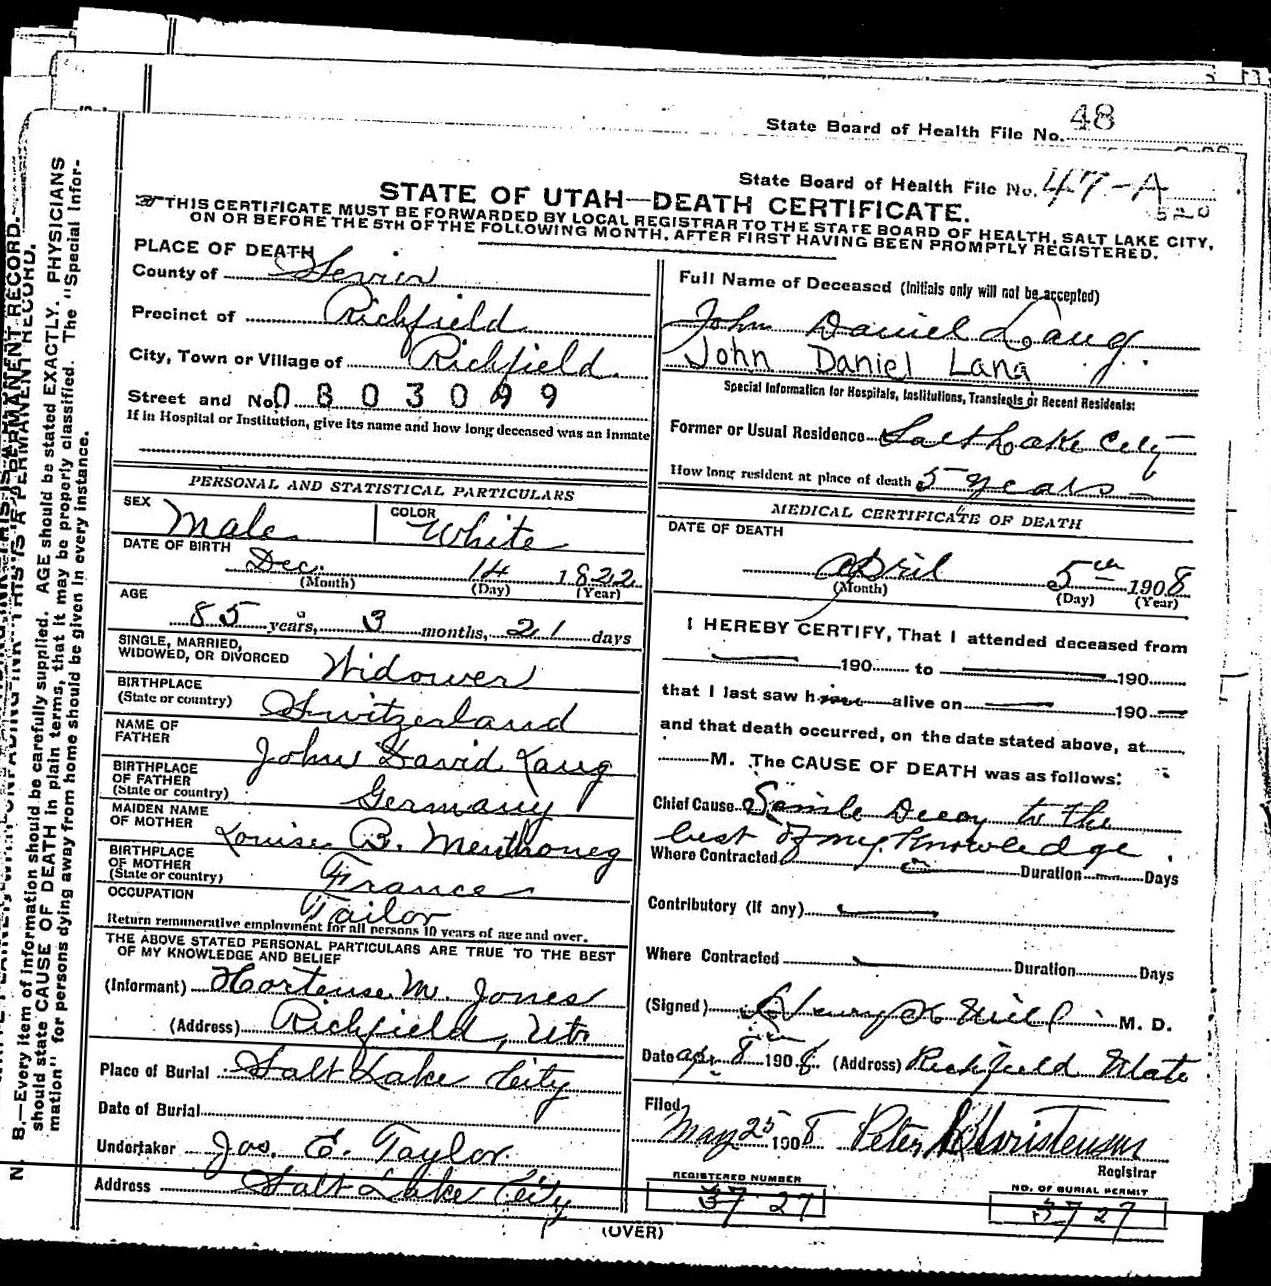 State Board of Health File No. 48
State Board of Health File No. 47-A
520
STATE OF UTAH—DEATH CERTIFICATE.
THIS CERTIFICATE MUST BE FORWARDED BY LOCAL REGISTRAR TO THE STATE BOARD OF HEALTH, SALT LAKE CITY,
ON OR BEFORE THE 5TH OF THE FOLLOWING MONTH, AFTER FIRST HAVING BEEN PROMPTLY REGISTERED.
PLACE OF DEATH
County of Sevier
Precinct of Richfield
City, Town or Village of Richfield
Street and No. 0803099
If in Hospital or Institution, give its name and how long deceased was an inmate
PERSONAL AND STATISTICAL PARTICULARS
SEX Male
COLOR White
DATE OF BIRTH
Dec. 14 1822
(Month) (Day) (Year)
AGE
85 years, 3 months, 21 days
SINGLE, MARRIED,
WIDOWED, OR DIVORCED Widower
BIRTHPLACE
(State or country) Switzerland
NAME OF
FATHER John David Laug
BIRTHPLACE
OF FATHER
(State or country) Germany
MAIDEN NAME
OF MOTHER Louise B. Menthoneg
BIRTHPLACE
OF MOTHER
(State or country) France
OCCUPATION
Tailor
Return remunerative employment for all persons 10 years of age and over.
THE ABOVE STATED PERSONAL PARTICULARS ARE TRUE TO THE BEST
OF MY KNOWLEDGE AND BELIEF
(Informant) Hortense M. Jones
(Address) Richfield, Utah
Place of Burial Salt Lake City
Date of Burial
Undertaker Jos. E. Taylor
Address Salt Lake City
Full Name of Deceased (Initials only will not be accepted)
John Daniel Laug.
John Daniel Lang
Special Information for Hospitals, Institutions, Transients or Recent Residents:
Former or Usual Residence Salt Lake City
How long resident at place of death 5 years
MEDICAL CERTIFICATE OF DEATH
DATE OF DEATH
April 5th 1908
(Month) (Day) (Year)
I HEREBY CERTIFY, That I attended deceased from
190 to 190
that I last saw him alive on 190
and that death occurred, on the date stated above, at
M. The CAUSE OF DEATH was as follows:
Chief Cause Senile Decay to the
best of my Knowledge.
Where Contracted Duration Days
Contributory (if any)
Where Contracted Duration Days
(Signed) Henry K Neill M. D.
Date Apr 8th 1908 (Address) Richfield Utah
Filed
May 25 1908 Peter Christensen
Registrar
REGISTERED NUMBER
37 27
NO. OF BURIAL PERMIT
37 27
(OVER)
N. B.—Every item of information should be carefully supplied. AGE should be stated EXACTLY. PHYSICIANS
should state CAUSE OF DEATH in plain terms, that it may be properly classified. The "Special Infor-
mation" for persons dying away from home should be given in every instance.